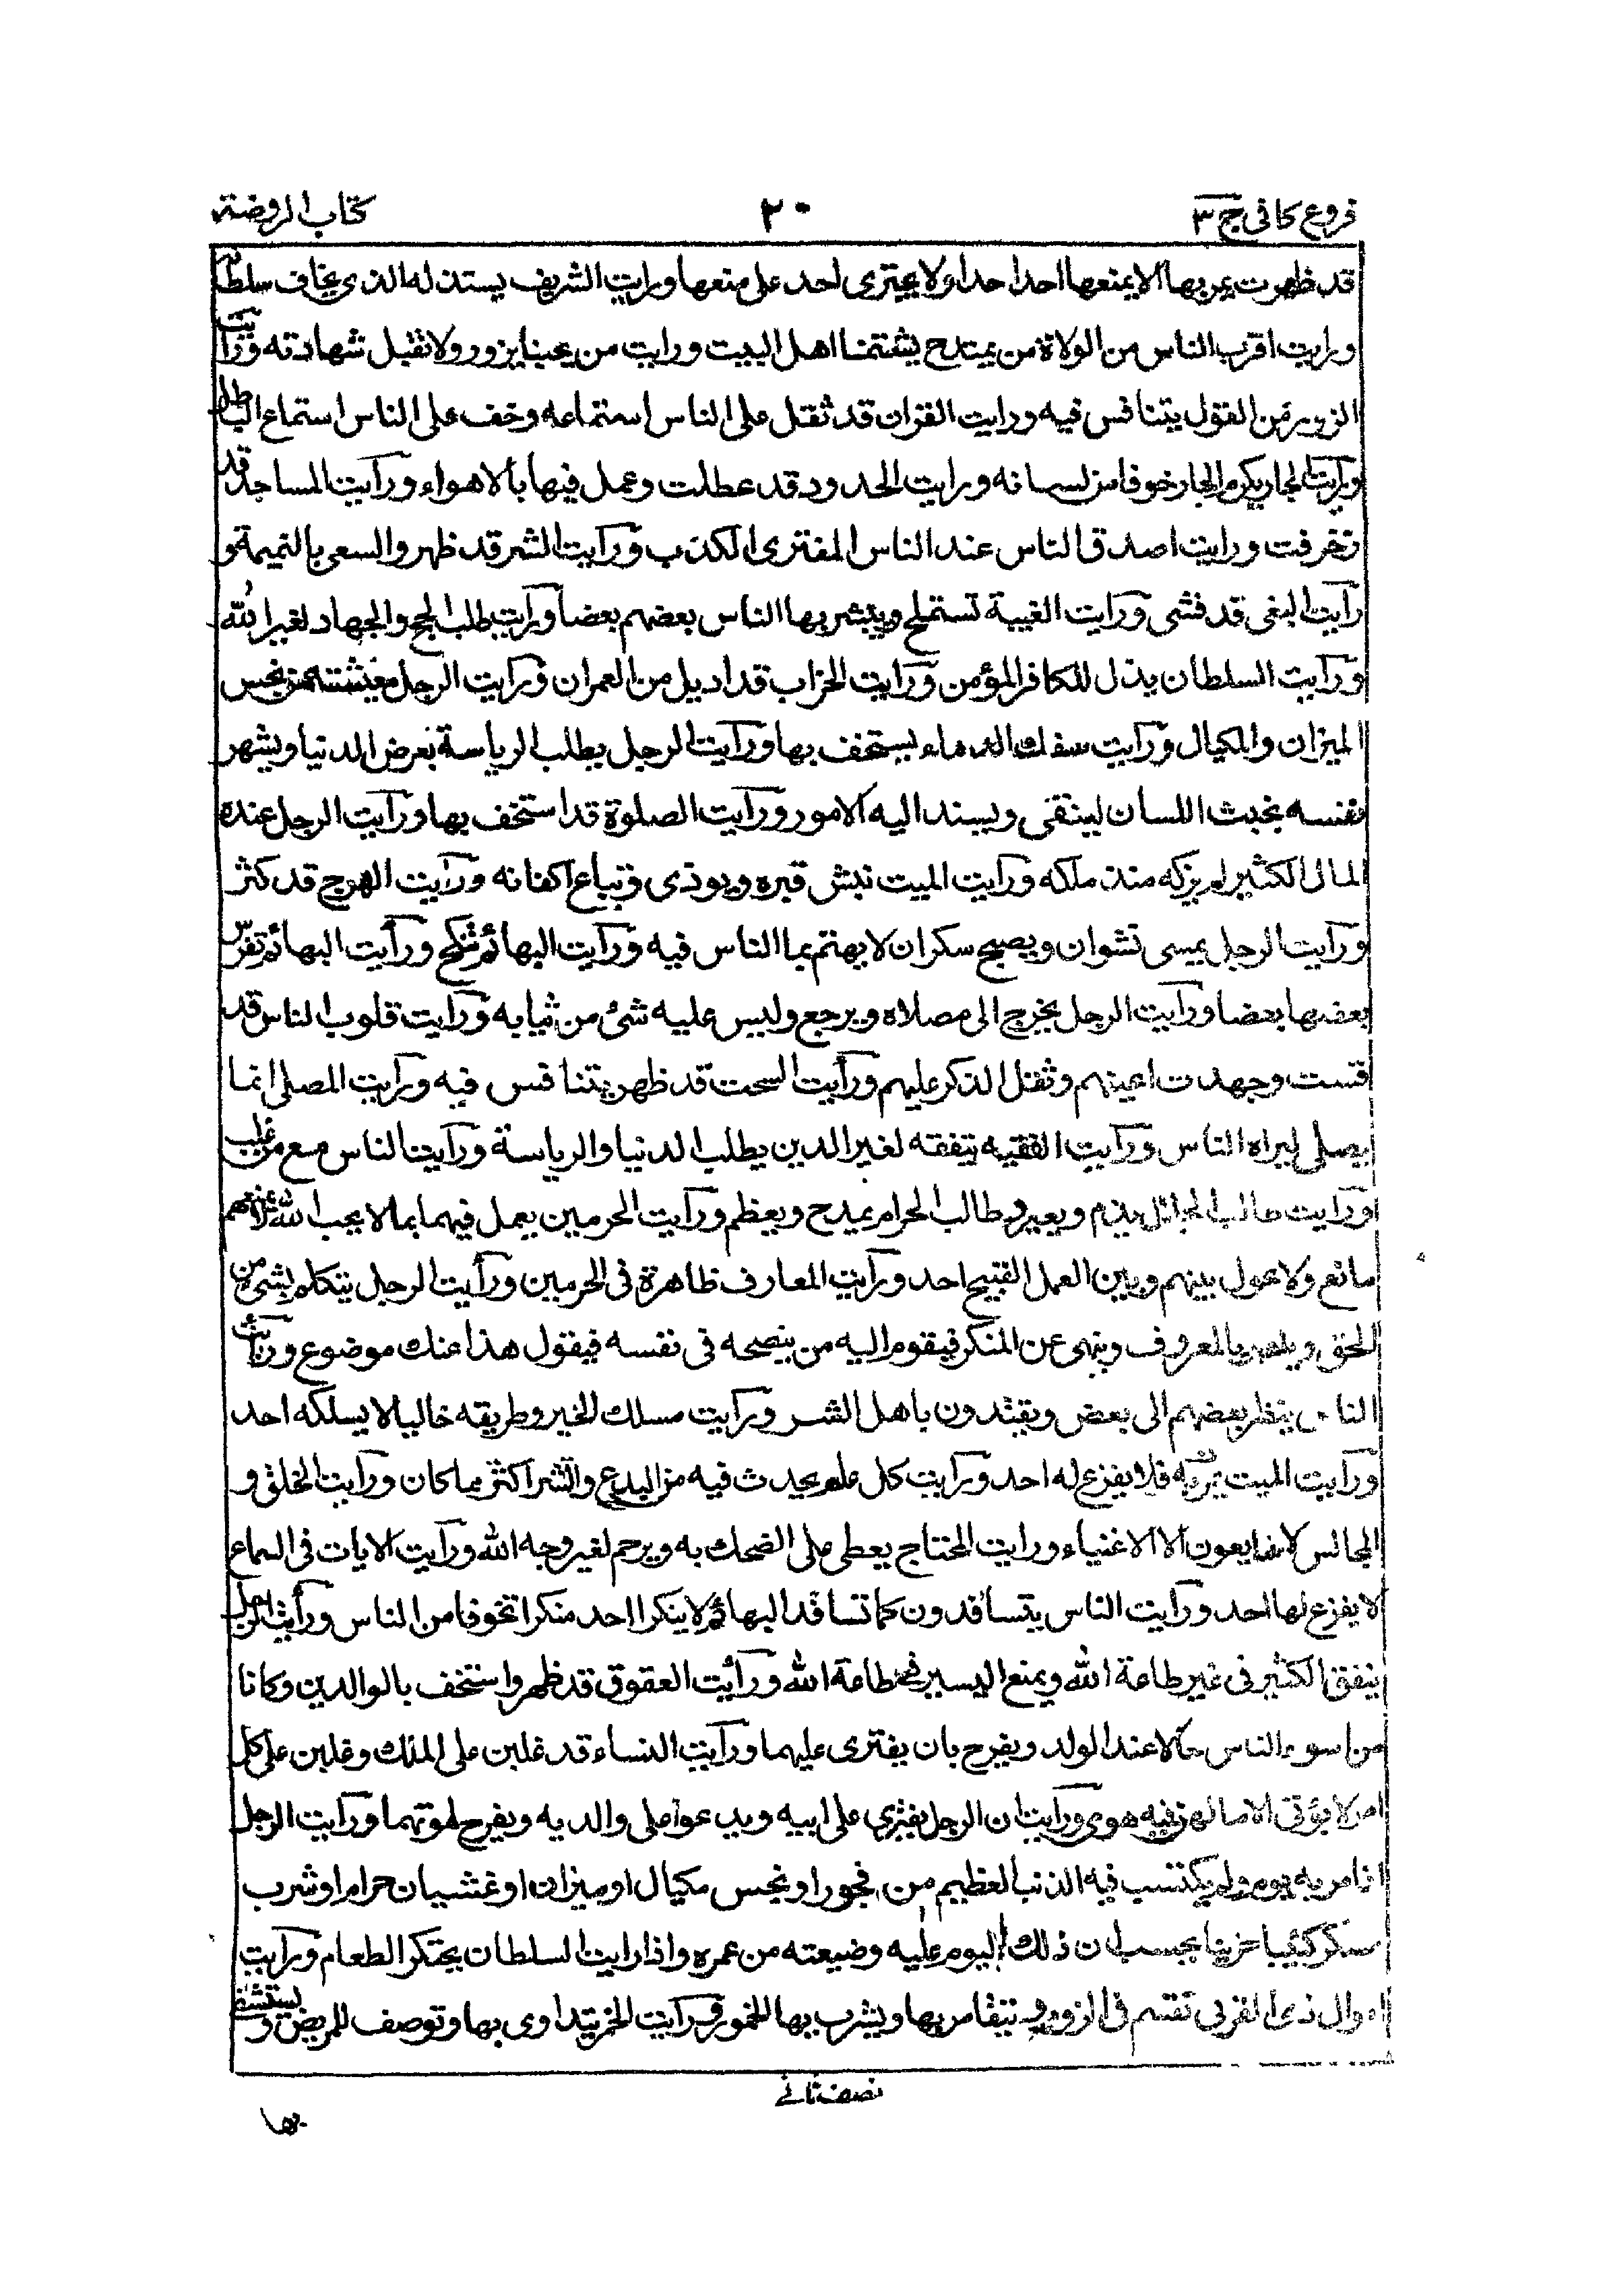 فروع كافى ج ٣
٢٠
كتاب الروضة
قد ظهرت يمر بها لا يمنعها احدا حدا ولا يجترى احد على منعها ورايت الشريف يستذله الذى يخاف سلطانه
ورايت اقرب الناس من الولاة من يمتدح بشتمنا اهل البيت ورايت من يحبنا يزور ولا تقبل شهادته ورأيت
الزور من القول يتنافس فيه ورايت القران قد ثقل على الناس استماعه وخف على الناس استماع الباطل
ورأيت الجار يكرم الجار خوفا من لسانه ورايت الحدود قد عطلت وعمل فيها بالاهواء ورأيت المساجد قد
زخرفت ورايت اصدق الناس عند الناس المفترى الكذب ورأيت الشر قد ظهر والسعى بالنميمة و
رأيت البغى قد فشى ورايت الغيبة تستملح ويبشر بها الناس بعضهم بعضا ورأيت طلب الحج والجهاد لغير الله
ورأيت السلطان يذل للكافر المؤمن ورأيت الخراب قد اديل من العمران ورايت الرجل معيشته من بخس
الميزان والمكيال ورأيت سفك الدماء يستخف بها ورأيت الرجل يطلب الرياسة بعرض الدنيا ويشهر
نفسه بخبث اللسان ليتقى ويسند اليه الامور ورأيت الصلوة قد استخف بها ورأيت الرجل عنده
المال الكثير لم يزكه منذ ملكه ورأيت الميت نبش قبره ويوذى وتباع اكفانه ورأيت الهرج قد كثر
ورأيت الرجل يمسى نشوان ويصبح سكران لا يهتم بما الناس فيه ورأيت البهائم تنكح ورأيت البهائم تفرس
بعضها بعضا ورأيت الرجل يخرج الى مصلاه ويرجع وليس عليه شئ من ثيابه ورأيت قلوب الناس قد
قست وجمدت اعينهم وثقل الذكر عليهم ورأيت السحت قد ظهر يتنافس فيه ورايت المصلى انما
يصلى ليراه الناس ورأيت الفقيه يتفقه لغير الدين يطلب الدنيا والرياسة ورأيت الناس مع من غلب
ورايت طالب الحلال يذم ويعير وطالب الحرام يمدح ويعظم ورأيت الحرمين يعمل فيهما بما لا يحب الله لا يمنعهم
مانع ولا يحول بينهم وبين العمل القبيح احد ورأيت المعازف ظاهرة فى الحرمين ورأيت الرجل يتكلم بشئ من
الحق ويامر بالمعروف وينهى عن المنكر فيقوم اليه من ينصحه فى نفسه فيقول هذا عنك موضوع ورأيت
الناس ينظر بعضهم الى بعض ويقتدون باهل الشر ورأيت مسلك الخير وطريقه خاليا لا يسلكه احد
ورأيت الميت يمر به فلا يفزع له احد ورأيت كل عام يحدث فيه من البدع والشر اكثر مما كان ورأيت الخلق و
المجالس لا يتابعون الا الاغنياء ورايت المحتاج يعطى على الضحك به ويرحم لغير وجه الله ورأيت الايات فى السماء
لا يفزع لها احد ورأيت الناس يتسافدون كما تسافد البهائم لا ينكر احد منكرا تخوفا من الناس ورأيت الرجل
ينفق الكثير فى غير طاعة الله ويمنع اليسير فى طاعة الله ورأيت العقوق قد ظهر واستخف بالوالدين وكانا
من اسوء الناس حالا عند الولد ويفرح بان يفترى عليهما ورأيت النساء قد غلبن على الملك وغلبن على كل
امر لا يؤتى الا ما لهن فيه هوى ورأيت ابن الرجل يفترى على ابيه ويدعو على والديه ويفرح لموتهما ورأيت الرجل
اذا مر به يوم ولم يكتسب فيه الذنب العظيم من فجور او بخس مكيال او ميزان او غشيان حرام او شرب
مسكر كئيبا حزينا يحسب ان ذلك اليوم عليه وضيعته من عمره واذا رايت السلطان يحتكر الطعام ورأيت
اموال ذى القربى تقسم فى الزور ويتقامر بها ويشرب بها الخمور ورأيت الخمر يتداوى بها وتوصف للمريض ويستشفى
نصف ثانى
بها